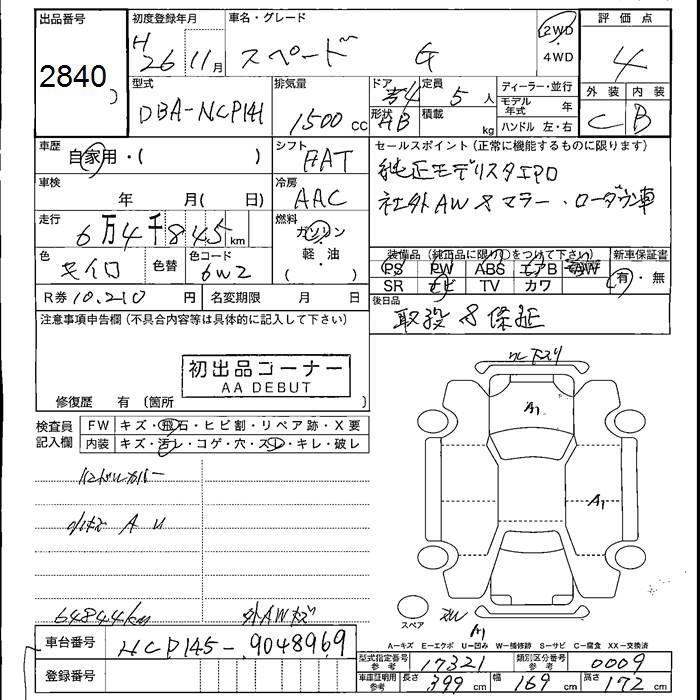 出品番号
2840
初度登録年月
H 26 11月
車名・グレード
スペード G
2WD
・
4WD
評価点
4
外装 内装
C B
型式
DBA-NCP141
排気量
1500 cc
ドア
4
形状
HB
定員
5 人
積載
kg
ディーラー・並行
モデル年式 年
ハンドル 左・右
車歴
自家用・( )
シフト
FAT
セールスポイント(正常に機能するものに限ります)
純正モデリスタエアロ
社外AW & マフラー・ローダウン車
車検
年 月( 日)
冷房
AAC
走行
6万4千845km
燃料
ガソリン
軽・油
( )
色
キイロ
色替
色コード
6W2
装備品(純正品に限り○をつけて下さい)
PS PW ABS エアB AW
SR ナビ TV カワ
新車保証書
有・無
R券 10,210 円
名変期限 月 日
後日品
取説 & 保証
注意事項申告欄(不具合内容等は具体的に記入して下さい)
初出品コーナー
AA DEBUT
修復歴 有(箇所 )
検査員記入欄
FW キズ・飛石・ヒビ割・リペア跡・X要
内装 キズ・汚レ・コゲ・穴・スレ・キレ・破レ
ハンドルカバー
小キズ A U
64844km
外AWキズ
下スリ
A1
A1
スペア
A1
A―キズ E―エクボ U―凹み W―補修跡 S―サビ C―腐食 XX―交換済
車台番号
NCP145-9048969
登録番号
型式指定番号
参考
17321
類別区分番号
参考
0009
車庫証明用
参考
長さ 399 cm
幅 169 cm
高さ 172 cm